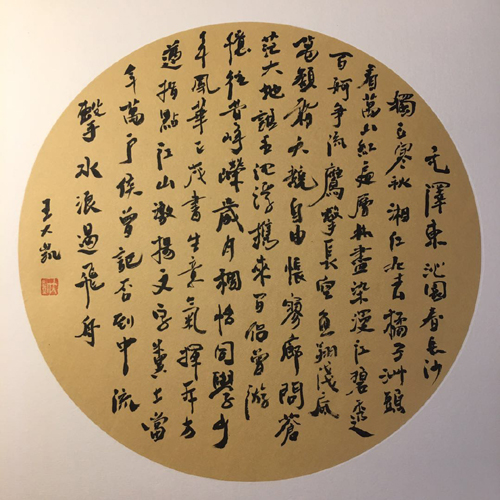 毛澤東沁園春長沙
獨立寒秋湘江北去橘子洲頭
看萬山紅遍層林盡染漫江碧透
百舸爭流鷹擊長空魚翔淺底
萬類霜天競自由悵寥廓問蒼
茫大地誰主沉浮攜來百侶曾游
憶往昔崢嶸歲月稠恰同學少
年風華正茂書生意氣揮斥方
遒指點江山激揚文字糞土當
年萬戶侯曾記否到中流
擊水浪遏飛舟
王大凱